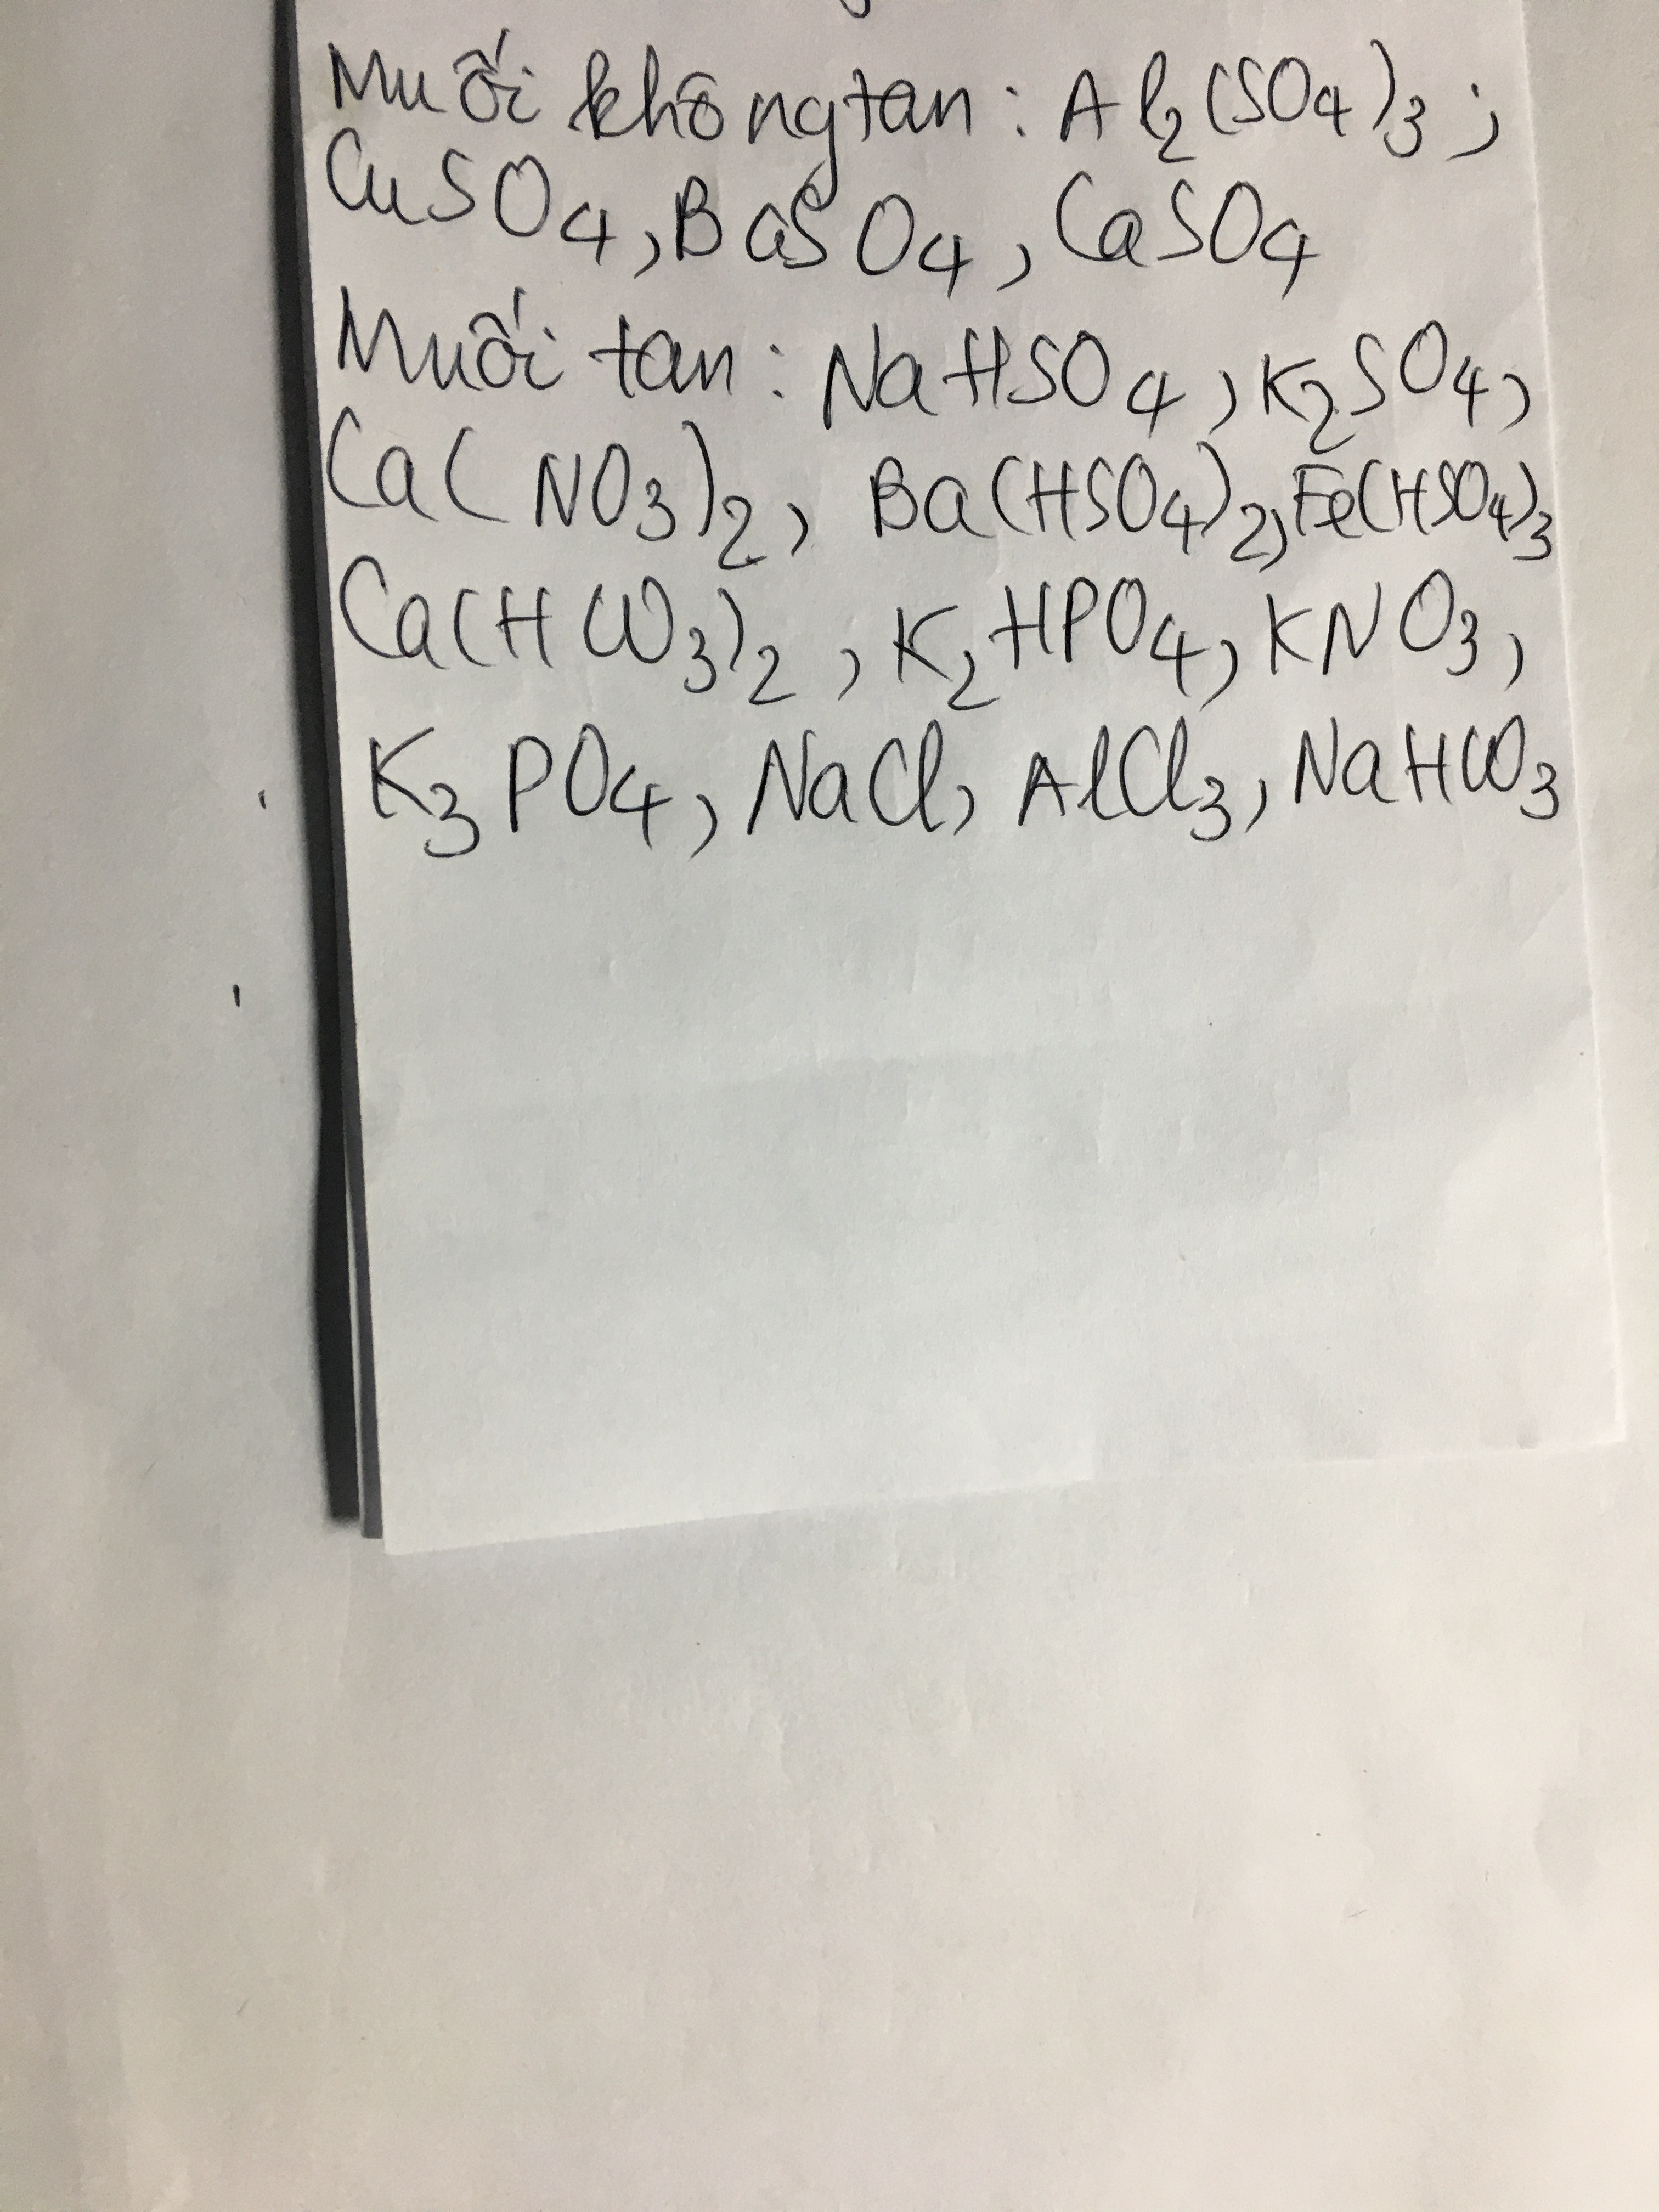 Muối không tan: Al2(SO4)3;
CuSO4, BaSO4, CaSO4
Muối tan: NaHSO4, K2SO4,
Ca(NO3)2, Ba(HSO4)2, Fe(HSO4)3
Ca(HCO3)2, K2HPO4, KNO3,
K3PO4, NaCl, AlCl3, NaHCO3